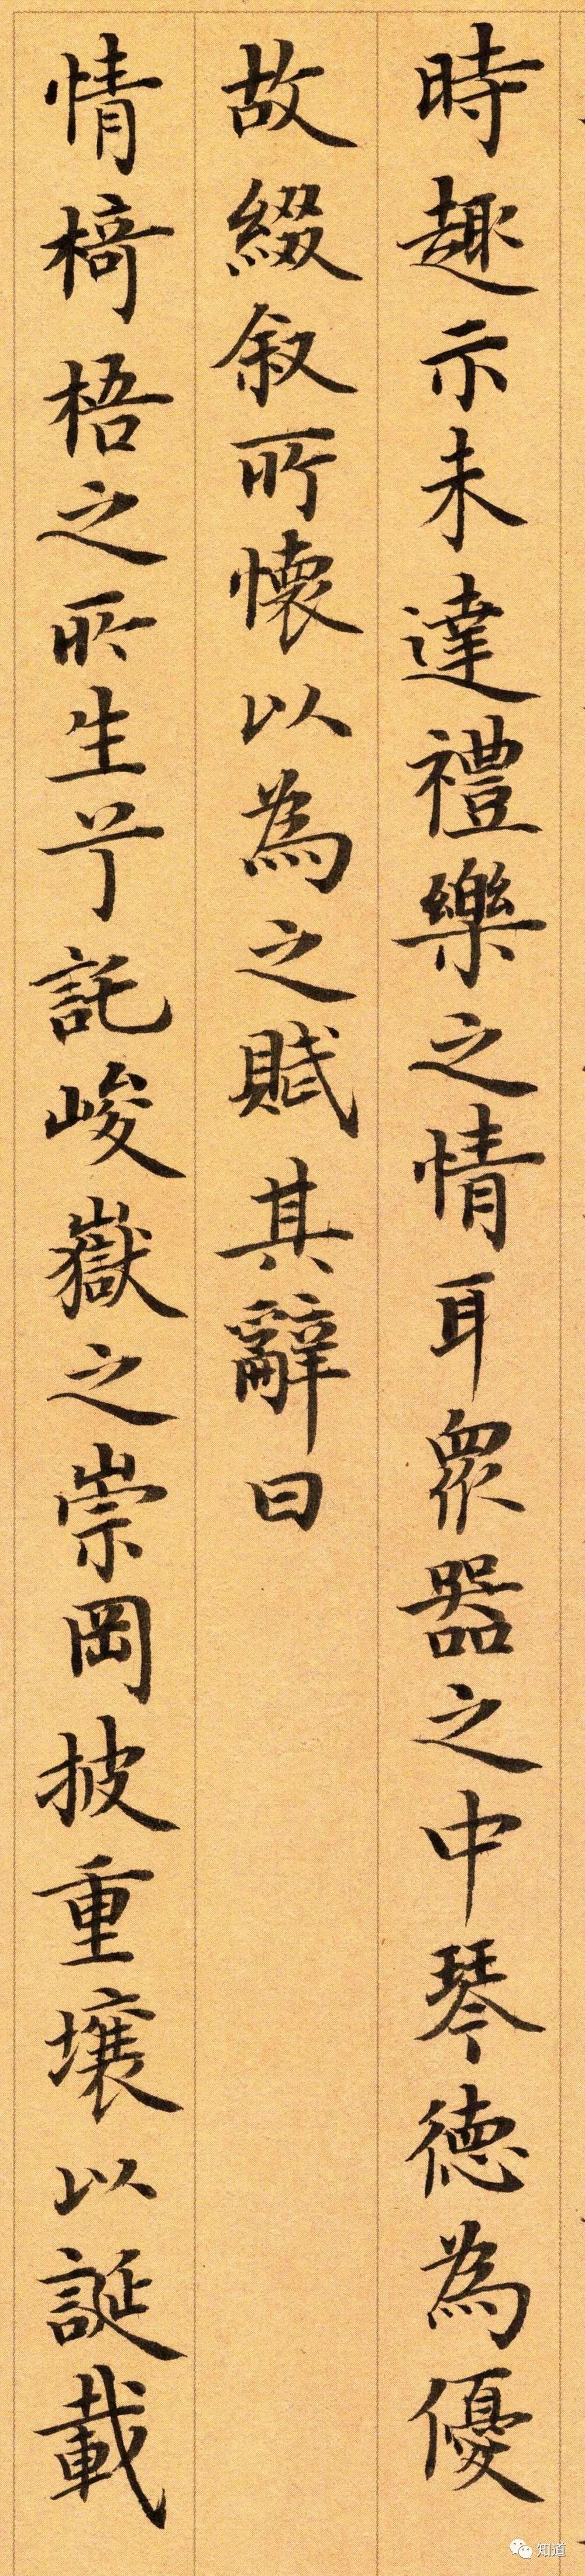 時趣示未達禮樂之情耳眾器之中琴德為優
故綴叙所懷以為之賦其辭曰
情椅梧之所生兮託峻嶽之崇岡披重壤以誕載
知道